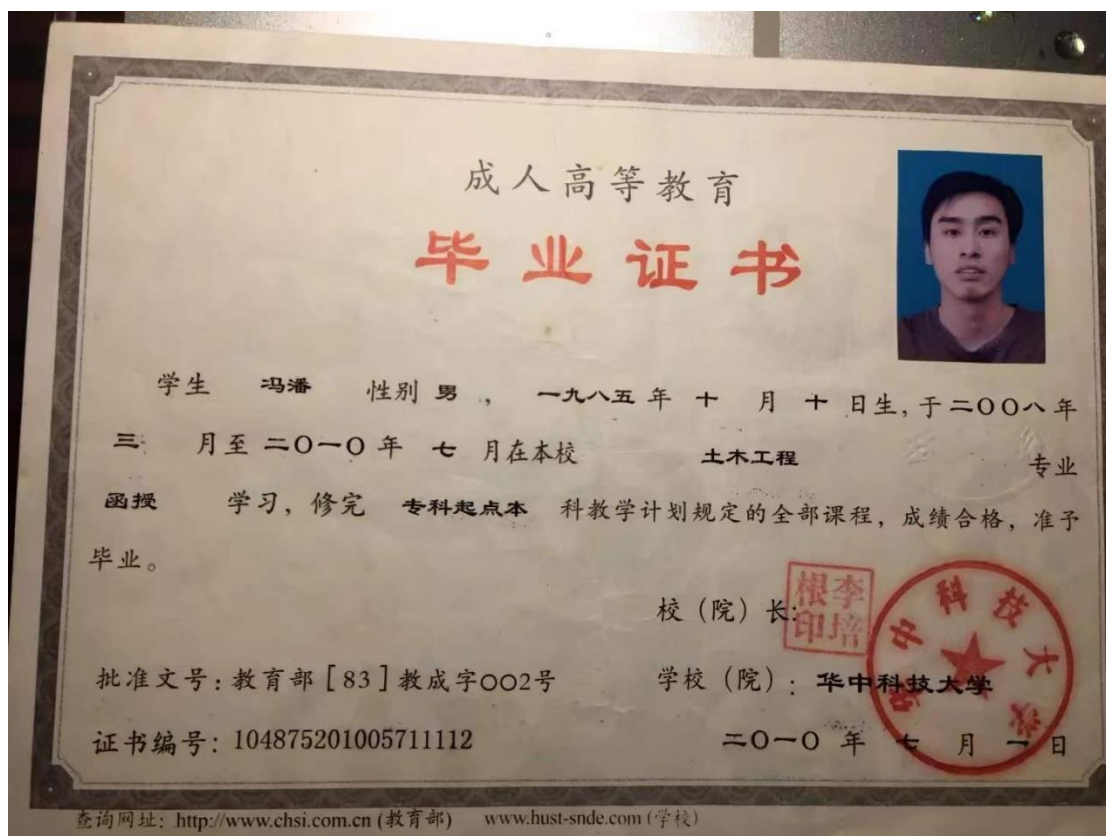 成人高等教育
毕业证书
学生 冯潘 性别 男 , 一九八五 年 十 月 十 日生, 于二〇〇八年
三 月至 二〇一〇 年 七 月在本校 土木工程 专业
函授 学习, 修完 专科起点本 科教学计划规定的全部课程, 成绩合格, 准予
毕业。
校(院)长:
李培根印
批准文号: 教育部[83]教成字〇〇2号
学校(院): 华中科技大学
华中科技大学
证书编号: 104875201005711112
二〇一〇 年 七 月 一 日
查询网址: http://www.chsi.com.cn (教育部) www.hust-snde.com (学校)